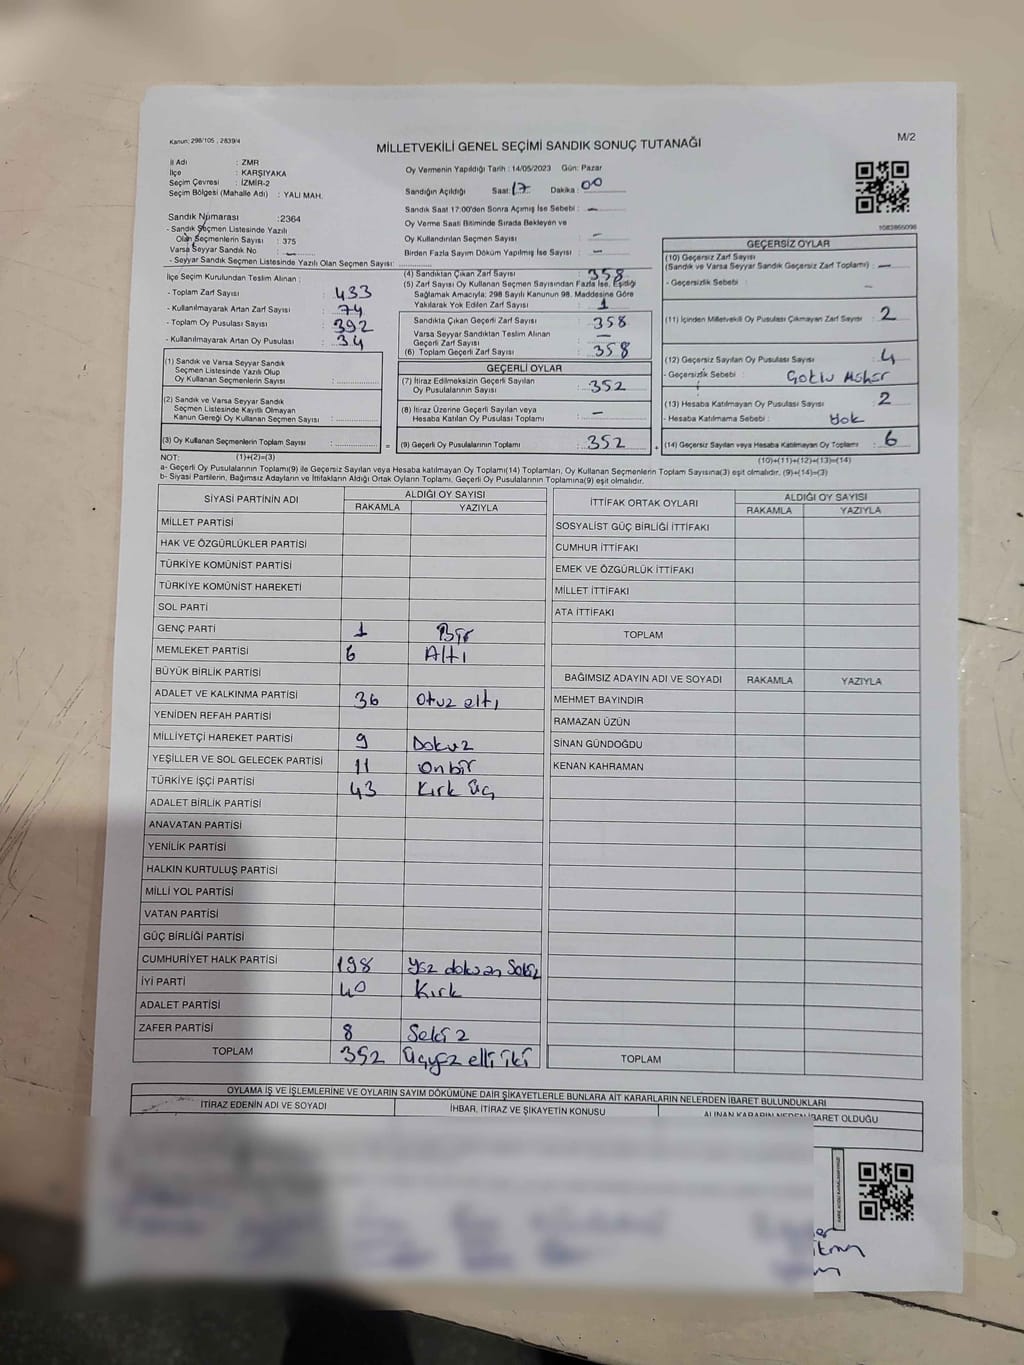 Kanun: 298/105 , 2839/4
M/2
MİLLETVEKİLİ GENEL SEÇİMİ SANDIK SONUÇ TUTANAĞI
İl Adı : ZMR
İlçe : KARŞIYAKA
Seçim Çevresi : İZMİR-2
Seçim Bölgesi (Mahalle Adı) : YALI MAH.
Oy Vermenin Yapıldığı Tarih : 14/05/2023 Gün: Pazar
Sandığın Açıldığı Saat: 17 Dakika: 00
Sandık Saat 17:00'den Sonra Açımış İse Sebebi : —
Oy Verme Saati Bitiminde Sırada Bekleyen ve
Oy Kullandırılan Seçmen Sayısı : —
Birden Fazla Sayım Dökümü Yapılmış İse Sayısı : —
Sandık Numarası :2364
- Sandık Seçmen Listesinde Yazılı
Olan Seçmenlerin Sayısı : 375
Varsa Seyyar Sandık No : —
- Seyyar Sandık Seçmen Listesinde Yazılı Olan Seçmen Sayısı:
1083865098
İlçe Seçim Kurulundan Teslim Alınan :
- Toplam Zarf Sayısı : 433
- Kullanılmayarak Artan Zarf Sayısı : 74
- Toplam Oy Pusulası Sayısı : 392
- Kullanılmayarak Artan Oy Pusulası : 34
(1) Sandık ve Varsa Seyyar Sandık
Seçmen Listesinde Yazılı Olup
Oy Kullanan Seçmenlerin Sayısı :
(2) Sandık ve Varsa Seyyar Sandık
Seçmen Listesinde Kayıtlı Olmayan
Kanun Gereği Oy Kullanan Seçmen Sayısı :
(3) Oy Kullanan Seçmenlerin Toplam Sayısı :
(4) Sandıktan Çıkan Zarf Sayısı : 358
(5) Zarf Sayısı Oy Kullanan Seçmen Sayısından Fazla İse, Eşitliği
Sağlamak Amacıyla; 298 Sayılı Kanunun 98. Maddesine Göre
Yakılarak Yok Edilen Zarf Sayısı : 1
Sandıkta Çıkan Geçerli Zarf Sayısı : 358
Varsa Seyyar Sandıktan Teslim Alınan
Geçerli Zarf Sayısı : —
(6) Toplam Geçerli Zarf Sayısı : 358
GEÇERLİ OYLAR
(7) İtiraz Edilmeksizin Geçerli Sayılan
Oy Pusulalarının Sayısı : 352
(8) İtiraz Üzerine Geçerli Sayılan veya
Hesaba Katılan Oy Pusulası Toplamı : —
= (9) Geçerli Oy Pusulalarının Toplamı : 352 +
GEÇERSİZ OYLAR
(10) Geçersiz Zarf Sayısı
(Sandık ve Varsa Seyyar Sandık Geçersiz Zarf Toplamı) : —
- Geçersizlik Sebebi : —
(11) İçinden Milletvekili Oy Pusulası Çıkmayan Zarf Sayısı : 2
(12) Geçersiz Sayılan Oy Pusulası Sayısı : 4
- Geçersizlik Sebebi :
(13) Hesaba Katılmayan Oy Pusulası Sayısı : 2
- Hesaba Katılmama Sebebi : Yok
(14) Geçersiz Sayılan veya Hesaba Katılmayan Oy Toplamı : 6
NOT: (1)+(2)=(3)
(10)+(11)+(12)+(13)=(14)
a- Geçerli Oy Pusulalarının Toplamı(9) ile Geçersiz Sayılan veya Hesaba katılmayan Oy Toplamı(14) Toplamları, Oy Kullanan Seçmenlerin Toplam Sayısına(3) eşit olmalıdır. (9)+(14)=(3)
b- Siyasi Partilerin, Bağımsız Adayların ve İttifakların Aldığı Ortak Oyların Toplamı, Geçerli Oy Pusulalarının Toplamına(9) eşit olmalıdır.
SİYASİ PARTİNİN ADI ALDIĞI OY SAYISI
RAKAMLA YAZIYLA
MİLLET PARTİSİ
HAK VE ÖZGÜRLÜKLER PARTİSİ
TÜRKİYE KOMÜNİST PARTİSİ
TÜRKİYE KOMÜNİST HAREKETİ
SOL PARTİ
GENÇ PARTİ 1 Bir
MEMLEKET PARTİSİ 6 Altı
BÜYÜK BİRLİK PARTİSİ
ADALET VE KALKINMA PARTİSİ 36 Otuz altı
YENİDEN REFAH PARTİSİ
MİLLİYETÇİ HAREKET PARTİSİ 9 Dokuz
YEŞİLLER VE SOL GELECEK PARTİSİ 11 on bir
TÜRKİYE İŞÇİ PARTİSİ 43 Kırk üç
ADALET BİRLİK PARTİSİ
ANAVATAN PARTİSİ
YENİLİK PARTİSİ
HALKIN KURTULUŞ PARTİSİ
MİLLİ YOL PARTİSİ
VATAN PARTİSİ
GÜÇ BİRLİĞİ PARTİSİ
CUMHURİYET HALK PARTİSİ 198 yüz doksan sekiz
İYİ PARTİ 40 Kırk
ADALET PARTİSİ
ZAFER PARTİSİ 8 Sekiz
TOPLAM 352 üçyüz elli iki
İTTİFAK ORTAK OYLARI ALDIĞI OY SAYISI
RAKAMLA YAZIYLA
SOSYALİST GÜÇ BİRLİĞİ İTTİFAKI
CUMHUR İTTİFAKI
EMEK VE ÖZGÜRLÜK İTTİFAKI
MİLLET İTTİFAKI
ATA İTTİFAKI
TOPLAM
BAĞIMSIZ ADAYIN ADI VE SOYADI RAKAMLA YAZIYLA
MEHMET BAYINDIR
RAMAZAN ÜZÜN
SİNAN GÜNDOĞDU
KENAN KAHRAMAN
TOPLAM
OYLAMA İŞ VE İŞLEMLERİNE VE OYLARIN SAYIM DÖKÜMÜNE DAİR ŞİKAYETLERLE BUNLARA AİT KARARLARIN NELERDEN İBARET BULUNDUKLARI
İTİRAZ EDENİN ADI VE SOYADI İHBAR, İTİRAZ VE ŞİKAYETİN KONUSU ALINAN KARARIN NEDEN İBARET OLDUĞU